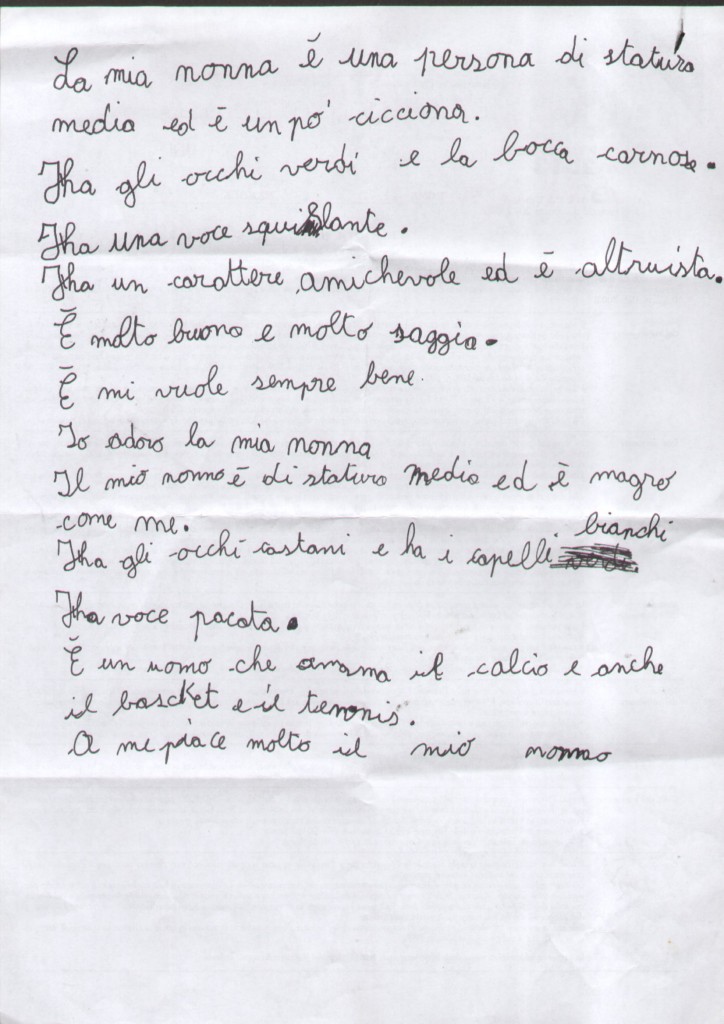 La mia nonna è una persona di statura
media ed è un po' cicciona.
Ha gli occhi verdi e la bocca carnosa.
Ha una voce squillante.
Ha un carattere amichevole ed è altruista.
È molto buona e molto saggia.
È mi vuole sempre bene.
Io adoro la mia nonna
Il mio nonno è di statura media ed è magro
come me.
Ha gli occhi castani e ha i capelli bianchi
Ha voce pacata.
È un uomo che amama il calcio e anche
il bascket e il tennis.
A me piace molto il mio nonno